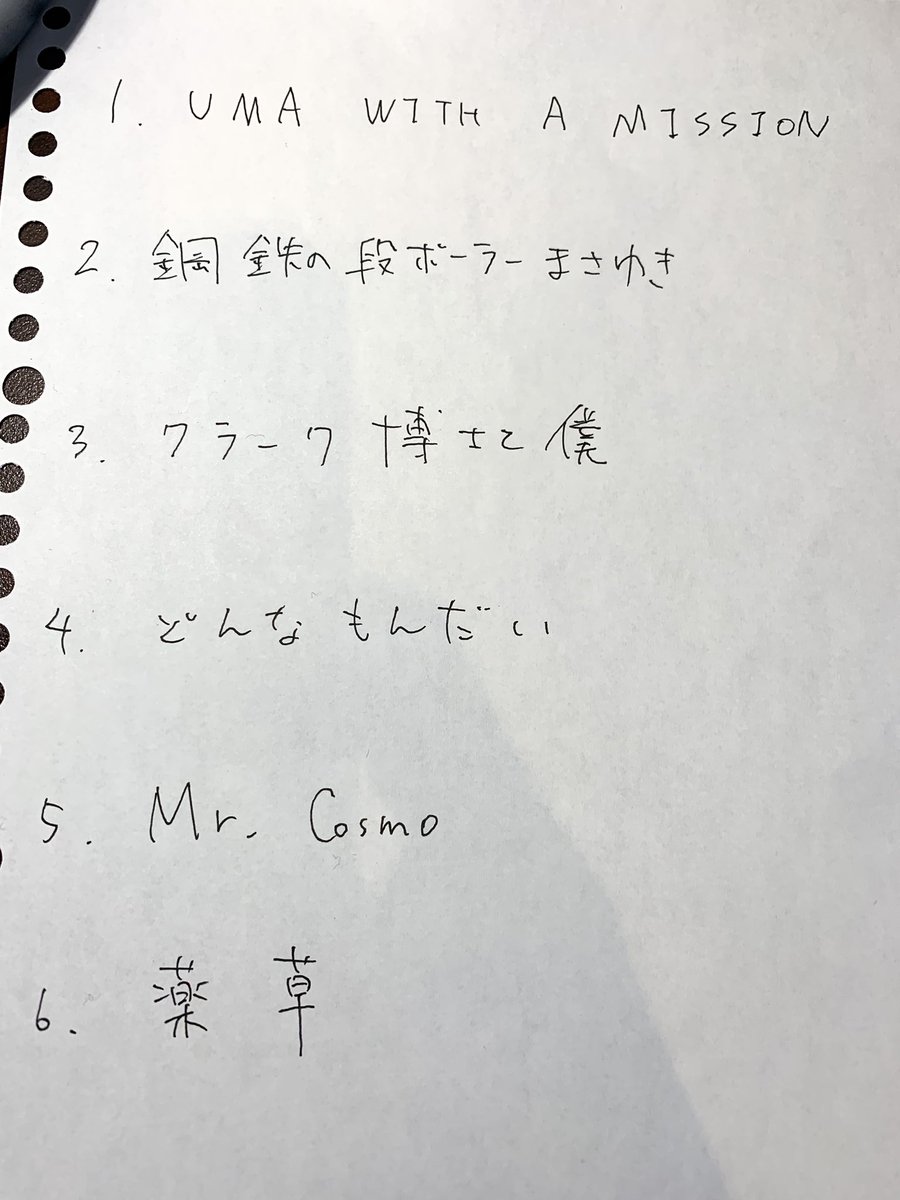 1. UMA WITH A MISSION
2. 鋼鉄の段ボーラーまさゆき
3. クラーク博士と僕
4. どんなもんだい
5. Mr. Cosmo
6. 薬草